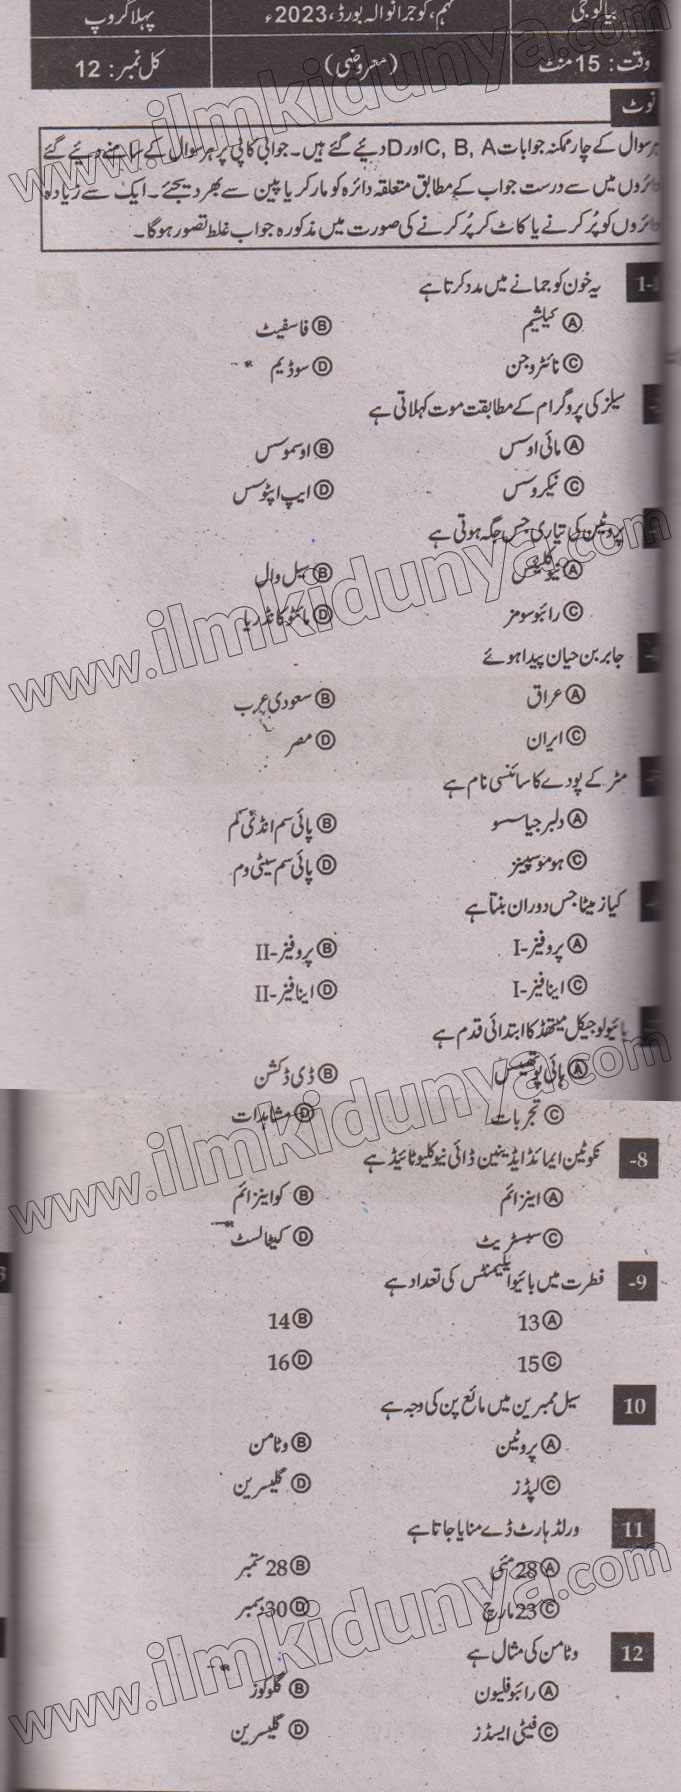 بیالوجی
نہم، گوجرانوالہ بورڈ، 2023ء
پہلا گروپ
وقت: 15 منٹ
(معروضی)
کل نمبر: 12
نوٹ
ہر سوال کے چار ممکنہ جوابات A، B، C اور D دیئے گئے ہیں۔ جوابی کاپی پر ہر سوال کے سامنے دیئے گئے
دائروں میں سے درست جواب کے مطابق متعلقہ دائرہ کو مارکر یا پین سے بھر دیجئے۔ ایک سے زیادہ
دائروں کو پُر کرنے یا کاٹ کر پُر کرنے کی صورت میں مذکورہ جواب غلط تصور ہوگا۔
1-1 یہ خون کو جمانے میں مدد کرتا ہے
Ⓐ کیلشیم Ⓑ فاسفیٹ
Ⓒ نائٹروجن Ⓓ سوڈیم
سیلز کی پروگرام کے مطابقت موت کہلاتی ہے
Ⓐ مائی اوسس Ⓑ اوسموسس
Ⓒ نیکروسس Ⓓ ایپ اپٹوسس
پروٹین کی تیاری جس جگہ ہوتی ہے
Ⓐ نیوکلیئس Ⓑ سیل وال
Ⓒ رائبوسومز Ⓓ مائٹوکانڈریا
جابر بن حیان پیدا ہوئے
Ⓐ عراق Ⓑ سعودی عرب
Ⓒ ایران Ⓓ مصر
مٹر کے پودے کا سائنسی نام ہے
Ⓐ دلبرجیا سسو Ⓑ پائی سم انڈی کم
Ⓒ ہوموسیپینز Ⓓ پائی سم سیٹی وم
کیازمیٹا جس دوران بنتا ہے
Ⓐ پروفیز-I Ⓑ پروفیز-II
Ⓒ اینافیز-I Ⓓ اینافیز-II
بائیولوجیکل میتھڈ کا ابتدائی قدم ہے
Ⓐ ہائی پوتھیسس Ⓑ ڈی ڈکشن
Ⓒ تجربات Ⓓ مشاہدات
8- نکوٹین ایمائڈ ایڈینین ڈائی نیوکلیوٹائیڈ ہے
Ⓐ اینزائم Ⓑ کو اینزائم
Ⓒ سبسٹریٹ Ⓓ کیٹالسٹ
9- فطرت میں بائیو ایلیمنٹس کی تعداد ہے
Ⓐ 13 Ⓑ 14
Ⓒ 15 Ⓓ 16
10 سیل ممبرین میں مائع پن کی وجہ ہے
Ⓐ پروٹین Ⓑ وٹامن
Ⓒ لپڈز Ⓓ گلیسرین
11 ورلڈ ہارٹ ڈے منایا جاتا ہے
Ⓐ 28 مئی Ⓑ 28 ستمبر
Ⓒ 23 مارچ Ⓓ 30 دسمبر
12 وٹامن کی مثال ہے
Ⓐ رائبوفلیون Ⓑ گلوکوز
Ⓒ فیٹی ایسڈز Ⓓ گلیسرین
www.ilmkidunya.com
www.ilmkidunya.com
www.ilmkidunya.com
www.ilmkidunya.com